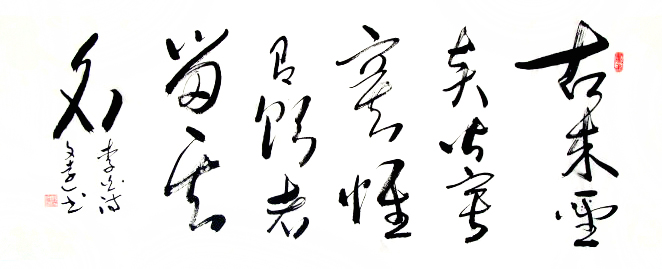 古来圣
贤皆寂
寞惟
有饮者
留其
名
李白诗
文书